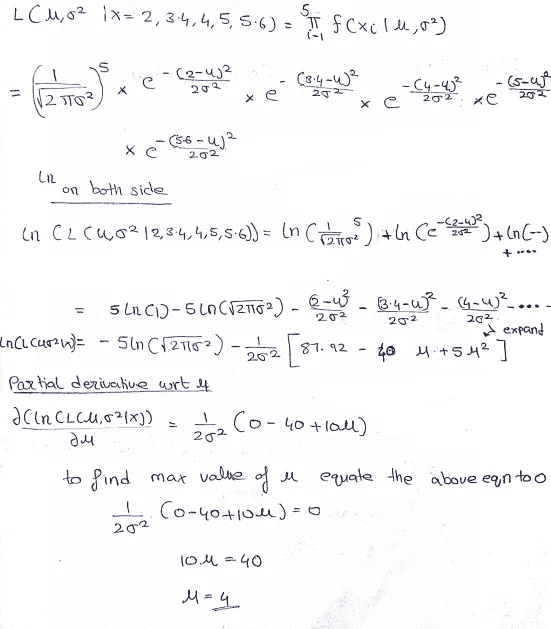 L(μ,σ² | x = 2, 3.4, 4, 5, 5.6) = ⁵π i-1 f(xi | μ,σ²)
= (1/√2πσ²)⁵ × e^-(2-μ)²/2σ² × e^-(3.4-μ)²/2σ² × e^-(4-μ)²/2σ² × e^-(5-μ)²/2σ²
× e^-(5.6-μ)²/2σ²
ln on both side
ln (L(μ,σ² | 2,3.4,4,5,5.6)) = ln (1/√2πσ² ⁵) + ln (e^-(2-μ)²/2σ²) + ln(--)
+ ....
= 5ln(1) - 5ln(√2πσ²) - (2-μ)²/2σ² - (3.4-μ)²/2σ² - (4-μ)²/2σ² - ....
expand
ln(L(μσ²|x)) = - 5ln(√2πσ²) - 1/2σ² [87.92 - 40 μ + 5μ²]
Partial derivative wrt μ
∂(ln(L(μ,σ²|x))/∂μ = 1/2σ² (0 - 40 + 10μ)
to find max value of μ equate the above eqn to 0
1/2σ² (0-40+10μ) = 0
10μ = 40
μ = 4